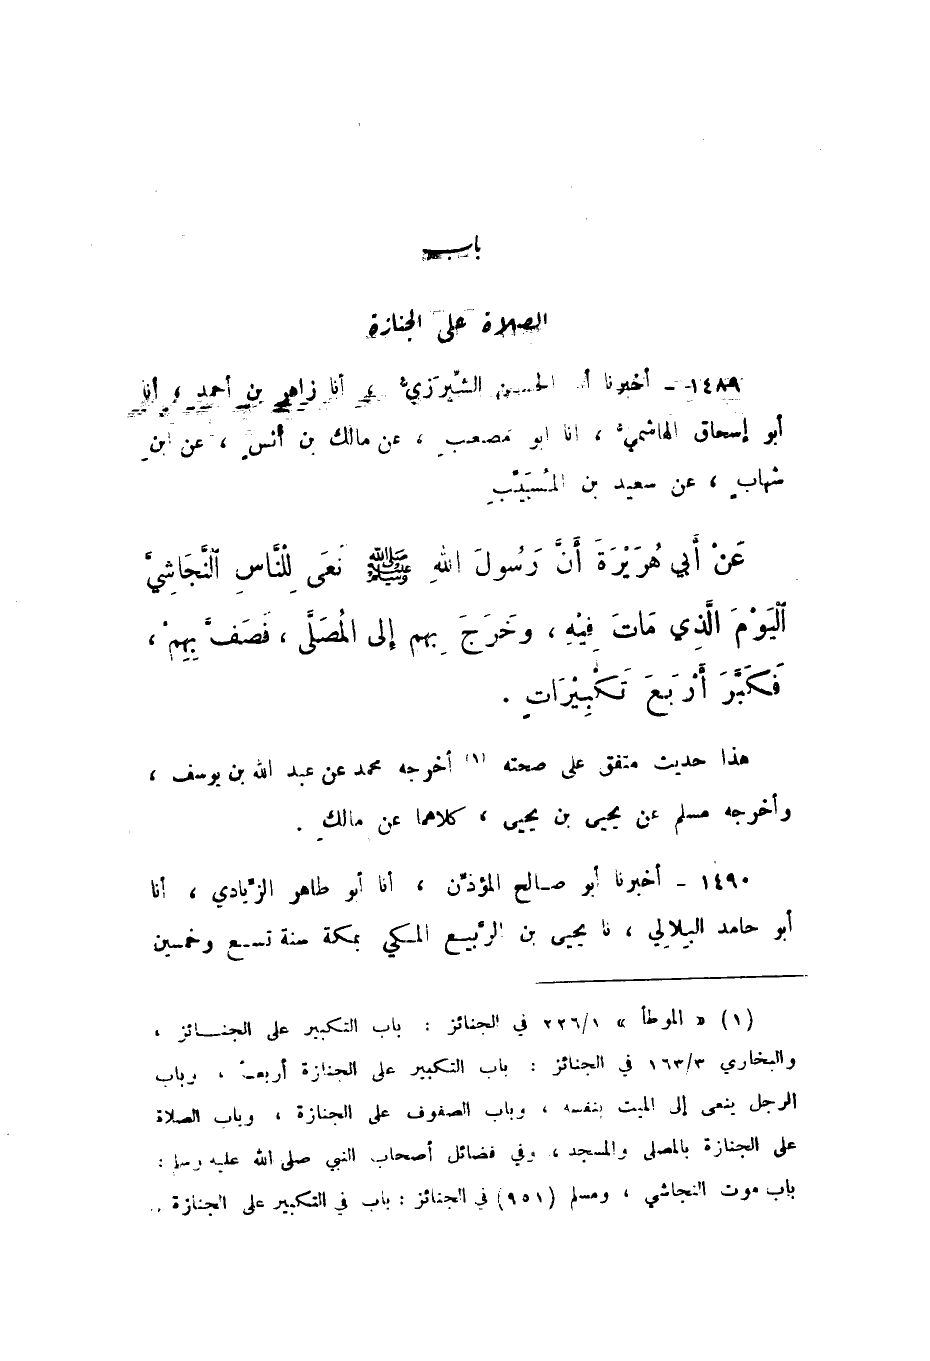 باب
الصلاة على الجنازة
١٤٨٩ - أخبرنا أبو الحسن الشِّيرَزيُّ ، أنا زاهر بن أحمد ، أنا
أبو إسحاق الهاشميُّ ، أنا أبو مصعبٍ ، عن مالك بن أنسٍ ، عن ابنِ
شهابٍ ، عن سعيد بن المُسَيَّبِ
عَنْ أَبي هُرَيْرَةَ أَنَّ رَسُولَ اللهِ ﷺ نَعَى لِلْنَّاسِ ٱلنَّجَاشِيَّ
ٱلْيَوْمَ الَّذِي مَاتَ فِيْهِ ، وخَرَجَ بِهم إلى المُصَلَّى ، فَصَفَّ بِهِمْ ،
فَكَبَّرَ أَرْبَعَ تَكْبِيْرَاتٍ .
هذا حديث متفق على صحته (١) أخرجه محمد عن عبد الله بن يوسف ،
وأخرجه مسلم عن يحيى بن يحيى ، كلاهما عن مالكٍ .
١٤٩٠ - أخبرنا أبو صالح المؤذّن ، أنا أبو طاهر الزّيادي ، أنا
أبو حامد البلالي ، نا يحيى بن الرّبيع المكي بمكة سنة تسع وخمسين
(١) « الموطأ » ٢٢٦/١ في الجنائز : باب التكبير على الجنائز ،
والبخاري ١٦٣/٣ في الجنائز : باب التكبير على الجنازة أربعاً ، وباب
الرجل ينعى إلى الميت بنفسه ، وباب الصفوف على الجنازة ، وباب الصلاة
على الجنازة بالمصلى والمسجد ، وفي فضائل أصحاب النبي صلى الله عليه وسلم :
باب موت النجاشي ، ومسلم (٩٥١) في الجنائز : باب في التكبير على الجنازة ..